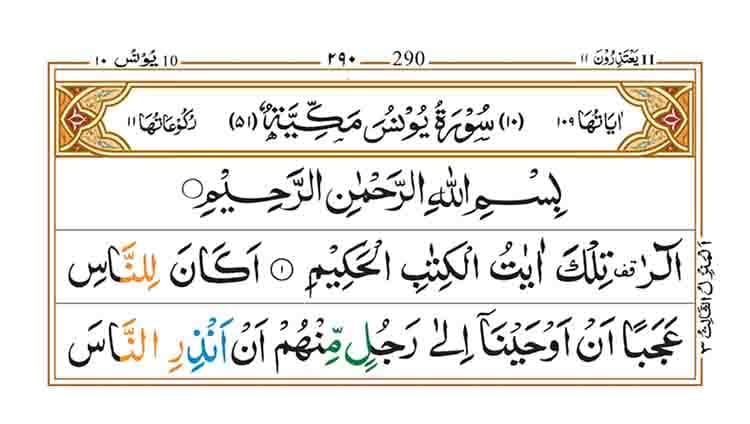 يَعْتَذِرُوْنَ ١١ 11 290 ٢٩٠ 10 يُوْنُس ١٠
اٰيَاتُهَا ١٠٩ (١٠) سُوْرَةُ يُوْنُسَ مَكِّيَّةٌ (٥١) رُكُوْعَاتُهَا ١١
بِسْمِ اللّٰهِ الرَّحْمٰنِ الرَّحِيْمِ
الٓرٰ قف تِلْكَ اٰيٰتُ الْكِتٰبِ الْحَكِيْمِ ١ اَكَانَ لِلنَّاسِ
عَجَبًا اَنْ اَوْحَيْنَاۤ اِلٰى رَجُلٍ مِّنْهُمْ اَنْ اَنْذِرِ النَّاسَ
اَلْمَنْزِلُ الثَّالِثُ ٣